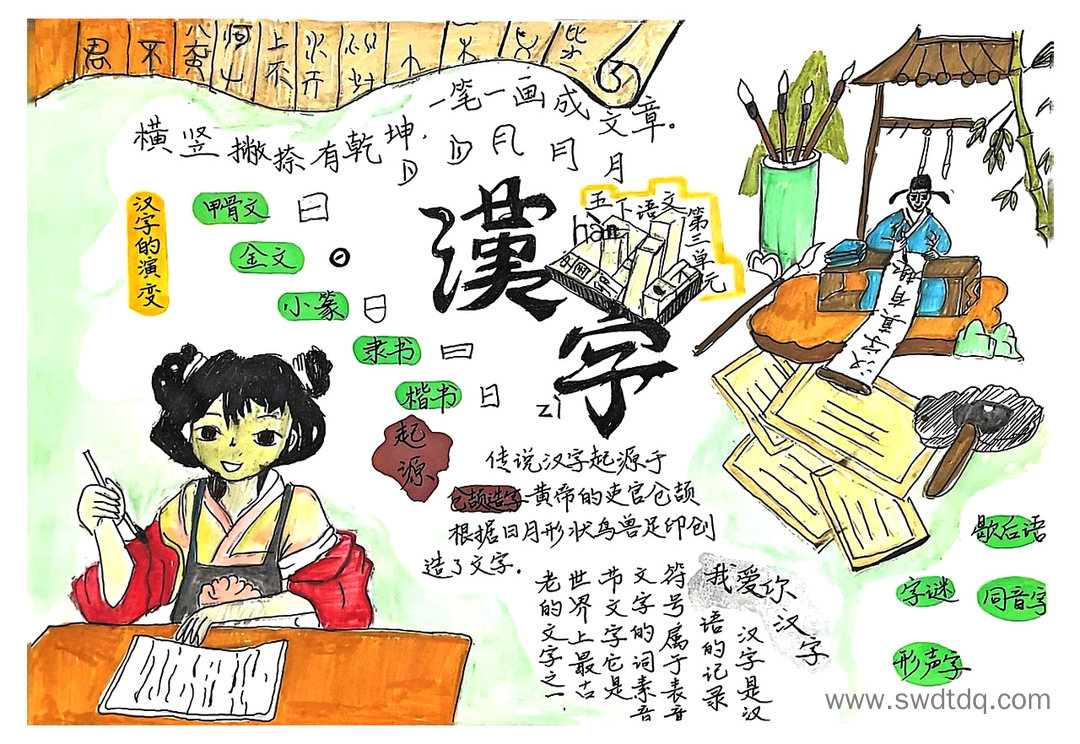 君 不
上
不
横竖撇捺有乾坤，
一笔一画成文章。
月
汉字的演变
甲骨文 日
金文
小篆 日
隶书 日
楷书 日
漢字
hàn
zì
五下语文
第三单元
汉字真有趣
起源
传说汉字起源于
仓颉造字-黄帝的史官仓颉
根据日月形状鸟兽足印创
造了文字.
我爱你汉字
汉字是汉
语的记录
符号属于表音
文字的词素音
节文字它是
世界上最古
老的文字之一.
歇后语
字谜
同音字
形声字
www.swdtdq.com